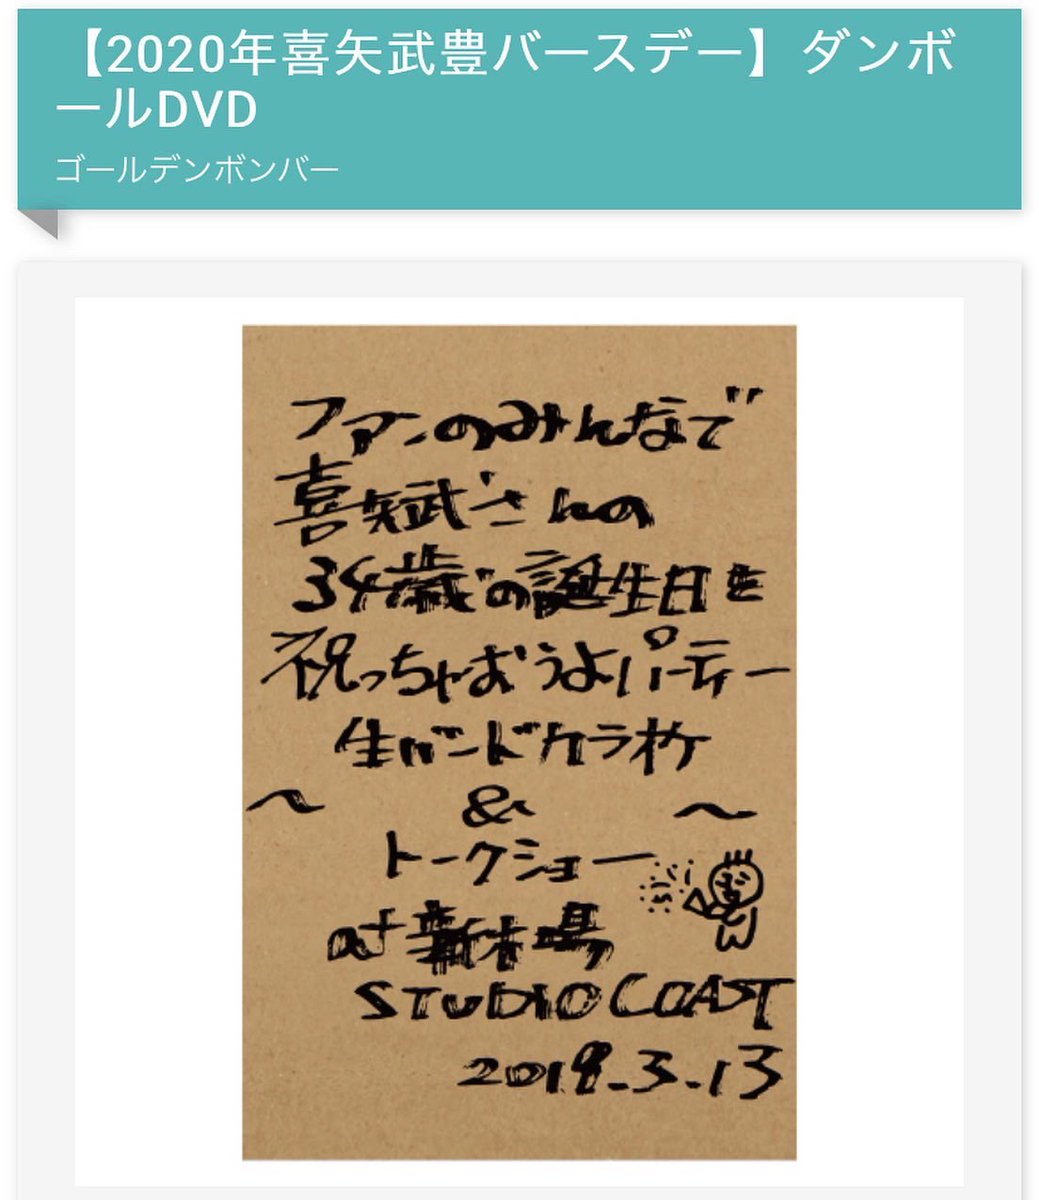 【2020年喜矢武豊バースデー】ダンボ
ールDVD
ゴールデンボンバー
ファンのみんなで
喜矢武さんの
34歳の誕生日を
祝っちゃおうよパーティー
生バンドカラオケ
〜 & 〜
トークショー
at 新木場
STUDIO COAST
2019.3.13